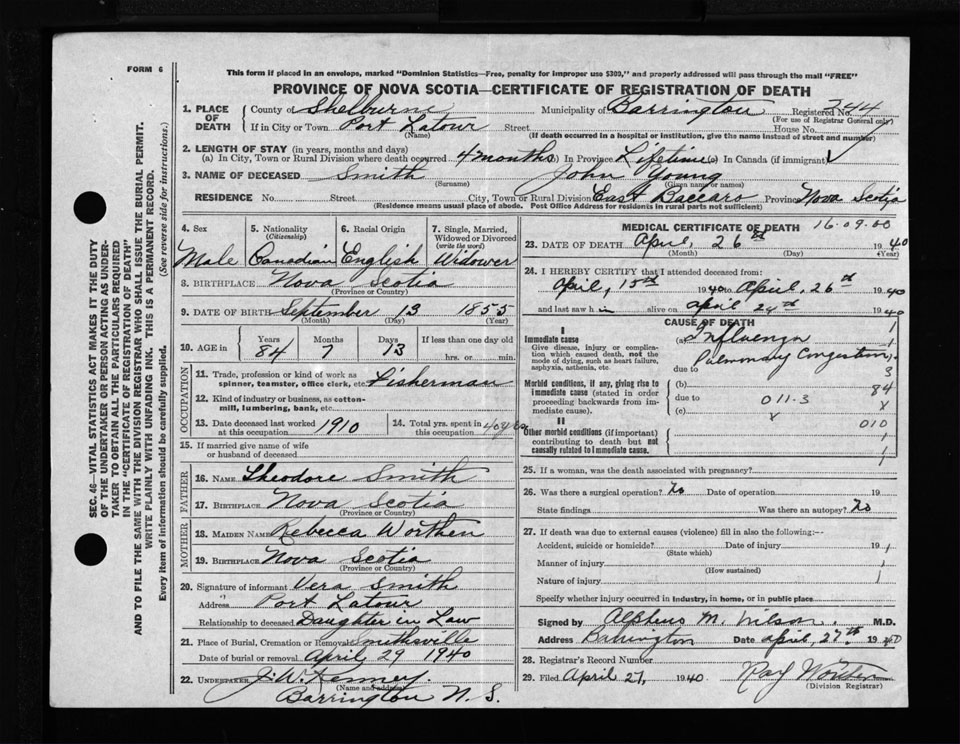 FORM 6
This form if placed in an envelope, marked "Dominion Statistics—Free, penalty for improper use $300," and properly addressed will pass through the mail "FREE"
PROVINCE OF NOVA SCOTIA—CERTIFICATE OF REGISTRATION OF DEATH
1. PLACE OF DEATH County of Shelburne Municipality of Barrington Registered No. 244
(For use of Registrar General only)
If in City or Town Port Latour Street House No.
(Name) (If death occurred in a hospital or institution, give the name instead of street and number)
2. LENGTH OF STAY (in years, months and days)
(a) In City, Town or Rural Division where death occurred 4 months (b) In Province Lifetime (c) In Canada (if immigrant)
3. NAME OF DECEASED Smith John Young
(Surname) (Given name or names)
RESIDENCE No. Street City, Town or Rural Division East Baccaro Province Nova Scotia
(Residence means usual place of abode. Post Office Address for residents in rural parts not sufficient)
4. Sex 5. Nationality (Citizenship) 6. Racial Origin 7. Single, Married, Widowed or Divorced (write the word)
Male Canadian English Widower
8. BIRTHPLACE Nova Scotia
(Province or Country)
9. DATE OF BIRTH September 13 1855
(Month) (Day) (Year)
10. AGE in Years Months Days If less than one day old
84 7 13 hrs. or min.
OCCUPATION
11. Trade, profession or kind of work as spinner, teamster, office clerk, etc. Fisherman
12. Kind of industry or business, as cotton-mill, lumbering, bank, etc.
13. Date deceased last worked at this occupation 1910 14. Total yrs. spent in this occupation 40 yrs
15. If married give name of wife or husband of deceased
FATHER
16. NAME Theodore Smith
17. BIRTHPLACE Nova Scotia
(Province or Country)
MOTHER
18. MAIDEN NAME Rebecca Worthen
19. BIRTHPLACE Nova Scotia
(Province or Country)
20. Signature of informant Vera Smith
Address Port Latour
Relationship to deceased Daughter in Law
21. Place of Burial, Cremation or Removal Smithsville
Date of burial or removal April 29 1940
22. UNDERTAKER J. W. Kenney
(Name and address)
Barrington N. S.
MEDICAL CERTIFICATE OF DEATH 16.09.00
23. DATE OF DEATH April, 26th 1940
(Month) (Day) (Year)
24. I HEREBY CERTIFY that I attended deceased from
April, 15th 1940 to April, 26th 1940
and last saw h im alive on April 24th 1940
CAUSE OF DEATH
I
Immediate cause (a) Influenza 1
Give disease, injury or complication which caused death, not the mode of dying, such as heart failure, asphyxia, asthenia, etc.
Pulmonary Congestion
due to 3
Morbid conditions, if any, giving rise to immediate cause (stated in order proceeding backwards from immediate cause).
(b) 84
due to 011.3 x
(c) x 010
II
Other morbid conditions (if important) contributing to death but not causally related to immediate cause. 1
25. If a woman, was the death associated with pregnancy?
26. Was there a surgical operation? no Date of operation 19
State findings Was there an autopsy? no
27. If death was due to external causes (violence) fill in also the following:--
Accident, suicide or homicide? Date of injury 19
(State which)
Manner of injury
(How sustained)
Nature of injury
Specify whether injury occurred in industry, in home, or in public place
Signed by Alpheus M. Wilson M.D.
Address Barrington Date April, 27th 1940
28. Registrar's Record Number
29. Filed April 27, 1940 Ray Worthen
(Division Registrar)
SEC. 46—VITAL STATISTICS ACT MAKES IT THE DUTY
OF THE UNDERTAKER OR PERSON ACTING AS UNDER-
TAKER TO OBTAIN ALL THE PARTICULARS REQUIRED
IN THE "CERTIFICATE OF REGISTRATION OF DEATH"
AND TO FILE THE SAME WITH THE DIVISION REGISTRAR WHO SHALL ISSUE THE BURIAL PERMIT.
WRITE PLAINLY WITH UNFADING INK. THIS IS A PERMANENT RECORD.
Every item of information should be carefully supplied. (See reverse side for instructions.)